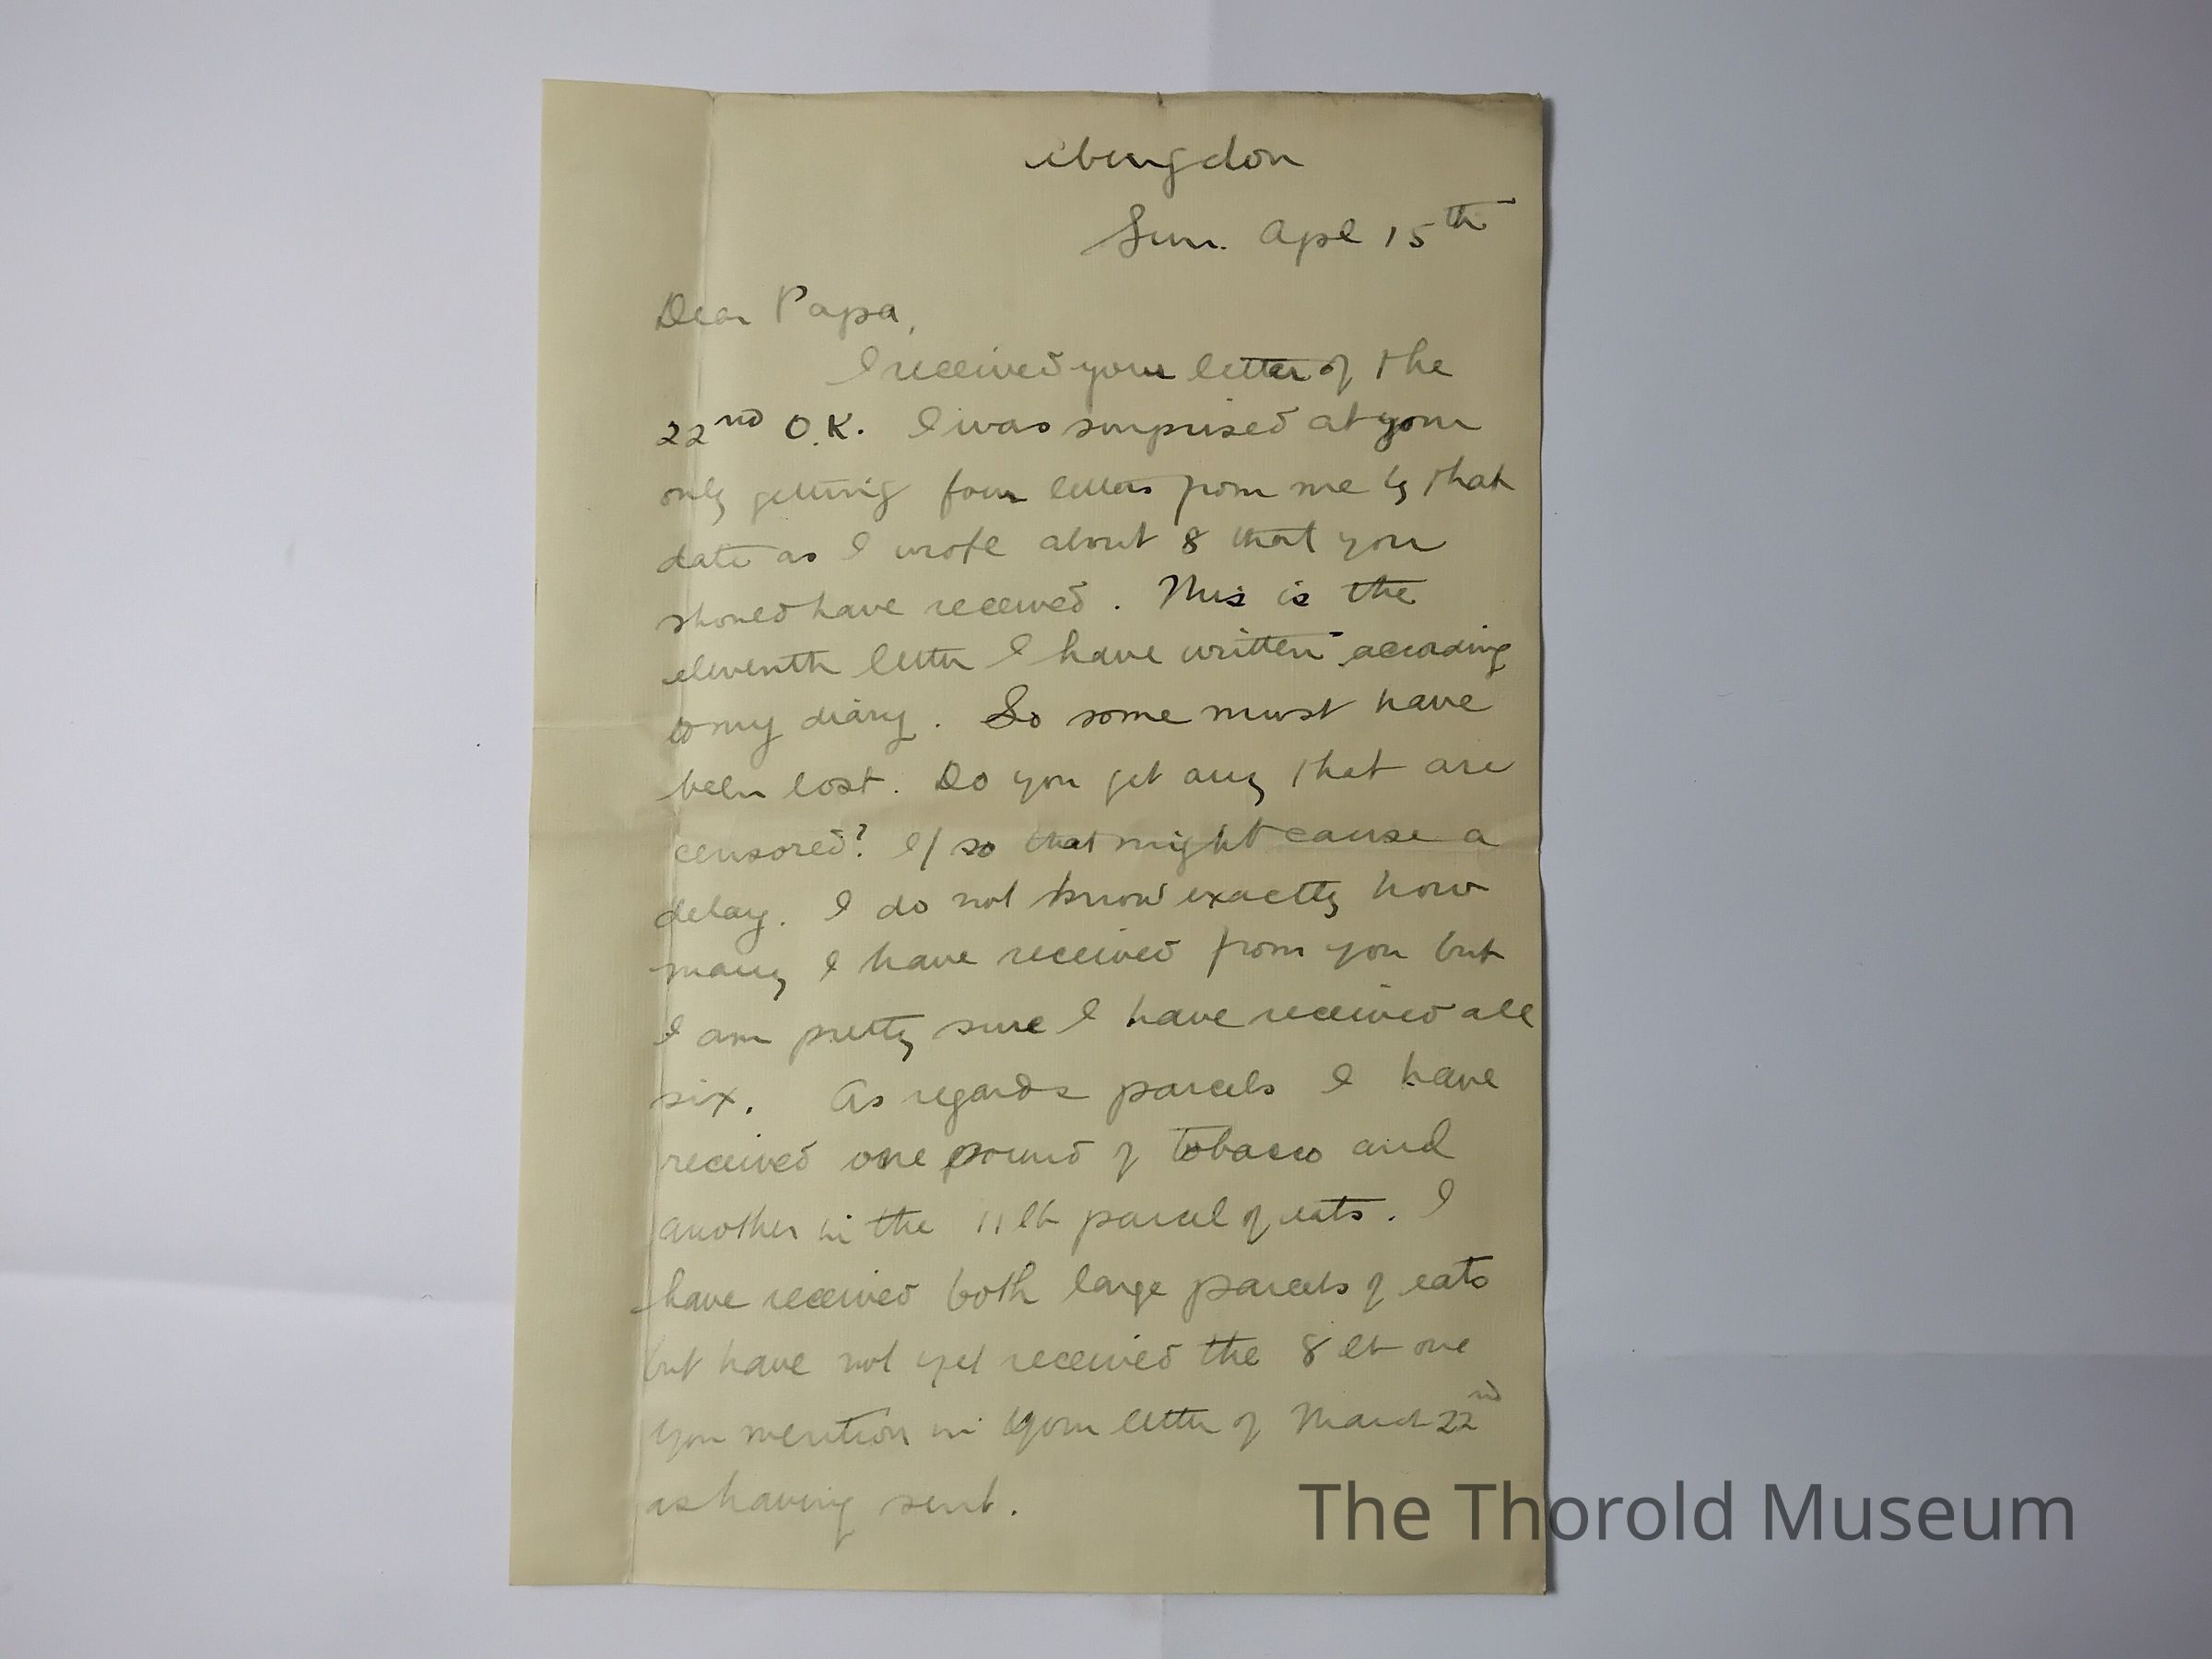 Abingdon
Sun. Apl 15th
Dear Papa,
I received your letter of the
22nd O.K. I was surprised at your
only getting four letters from me by that
date as I wrote about 8 that you
should have received. This is the
eleventh letter I have written according
to my diary. So some must have
been lost. Do you get any that are
censored? If so that might cause a
delay. I do not know exactly how
many I have received from you but
I am pretty sure I have received all
six. As regards parcels I have
received one pound of tobacco and
another in the 11 lb parcel of eats. I
have received both large parcels of eats
but have not yet received the 8 lb one
you mention in your letter of March 22nd
as having sent.
The Thorold Museum